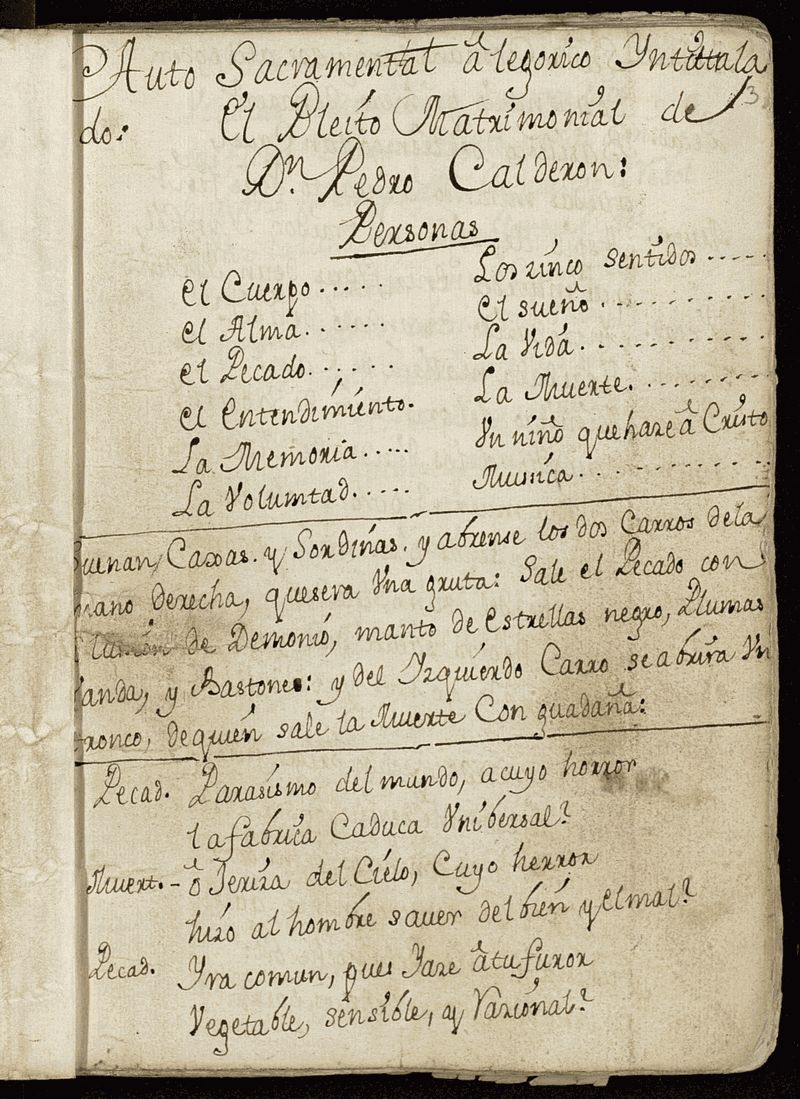 Auto Sacramental âlegorico Yntitula
3
do: El Pleito Matrimonial de
Dn. Pedro Calderon:
Personas
el Cuerpo .....
el Alma ......
el Pecado ......
el entendimiento.
La Memoria .....
La Volumtad .....
Los zinco sentidos .....
el sueño ..........
La Vida ..........
La Muerte ..........
Vn niño que haze â Cristo
Mussica ..........
Suenan Caxas. y Sordinas. y abrense los dos Carros dela
mano derecha, quesera Vna gruta: Sale el Pecado con
de Demonio, manto de estrellas negro, Plumas
Vanda, y Bastones: y del Izquierdo Carro se abrira Vn
tronco, dequien sale la Muerte Con guadaña:
Pecad. Parasismo del mundo, a cuyo horror
la fabrica Caduca Vnibersal?
Muert. - ô Jeriza del Cielo, Cuyo herror
hizo al hombre saver del bien y el mal?
Pecad. Yra comun, que Yaze â tu furor
Vegetable, sensible, y Razional?